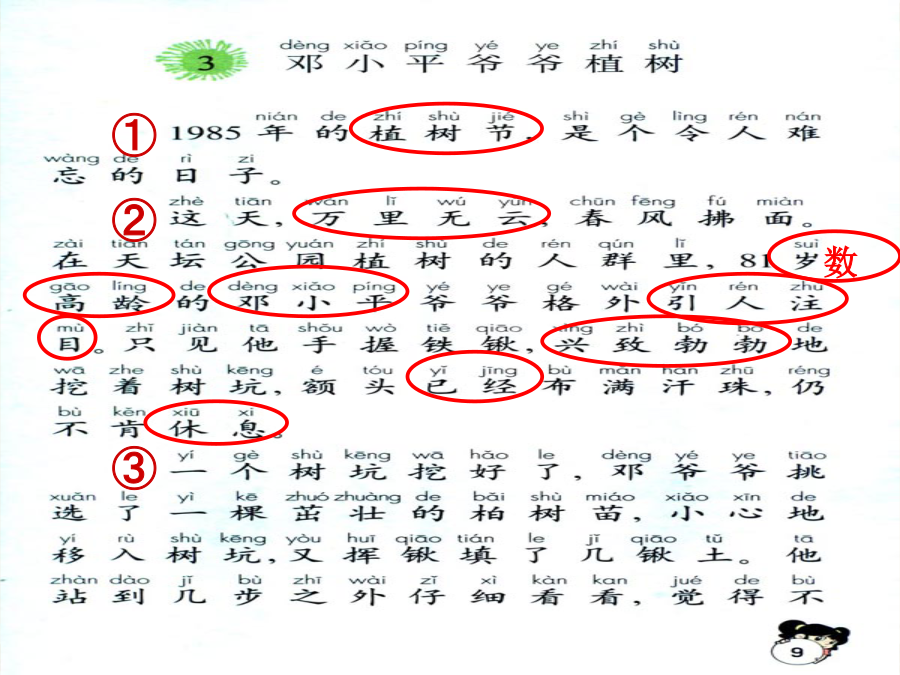 dèng xiǎo píng yé ye zhí shù
3 邓小平爷爷植树
nián de zhí shù jié shì gè lìng rén nán
① 1985年的植树节，是个令人难
wàng de rì zi
忘的日子。
zhè tiān wàn lǐ wú yún chūn fēng fú miàn
② 这天，万里无云，春风拂面。
zài tiān tán gōng yuán zhí shù de rén qún lǐ suì
在天坛公园植树的人群里，81岁 数
gāo líng de dèng xiǎo píng yé ye gé wài yǐn rén zhù
高龄的邓小平爷爷格外引人注
mù zhǐ jiàn tā shǒu wò tiě qiāo xìng zhì bó bó de
目。只见他手握铁锹，兴致勃勃地
wā zhe shù kēng é tóu yǐ jīng bù mǎn hàn zhū réng
挖着树坑，额头已经布满汗珠，仍
bù kěn xiū xi
不肯休息。
yí gè shù kēng wā hǎo le dèng yé ye tiāo
③ 一个树坑挖好了，邓爷爷挑
xuǎn le yì kē zhuó zhuàng de bǎi shù miáo xiǎo xīn de
选了一棵茁壮的柏树苗，小心地
yí rù shù kēng yòu huī qiāo tián le jǐ qiāo tǔ tā
移入树坑，又挥锹填了几锹土。他
zhàn dào jǐ bù zhī wài zǐ xì kàn kan jué de bù
站到几步之外仔细看看，觉得不
9